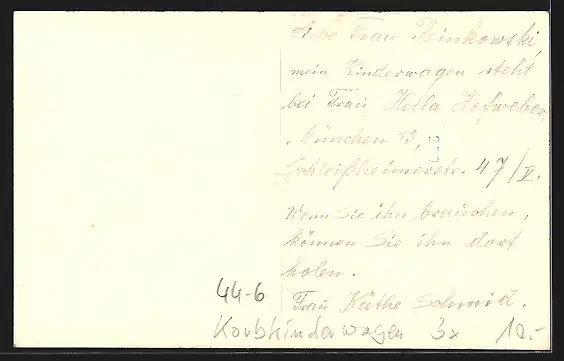 Liebe Frau Peinkowski,
mein Kinderwagen steht
bei Frau Hella Hofweber,
München 13,
Schleißheimerstr. 47/V.
Wenn Sie ihn brauchen,
können Sie ihn dort
holen.
Frau Käthe Schmid.
44-6
Korbkinderwagen 3x 10.-